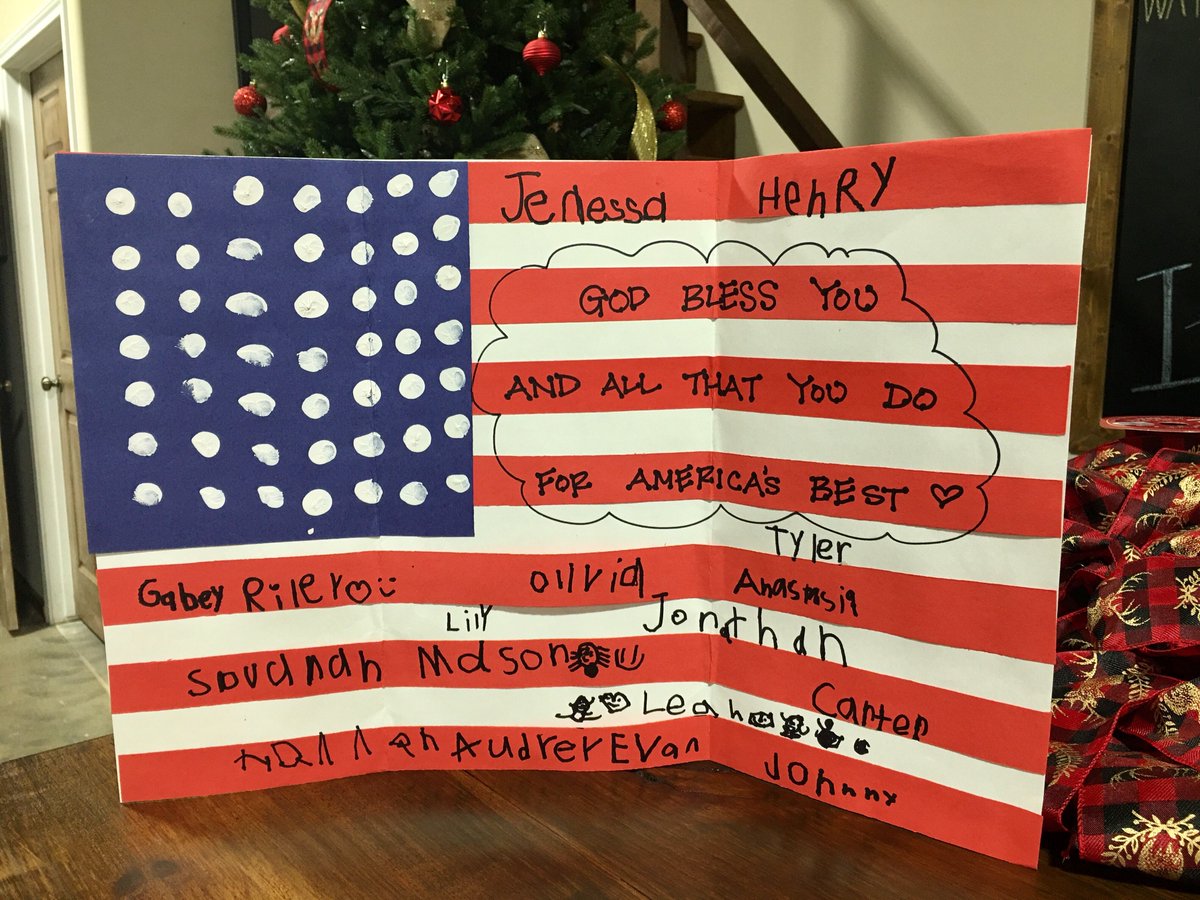 Jenessa HENRY
GOD BLESS YOU
AND ALL THAT YOU DO
FOR AMERICA'S BEST ♡
Tyler
Gabey Riley olivia Anastasia
Lilly Jonathan
Savanah Mason
Leah Carter
Audrey Evan
Johnny